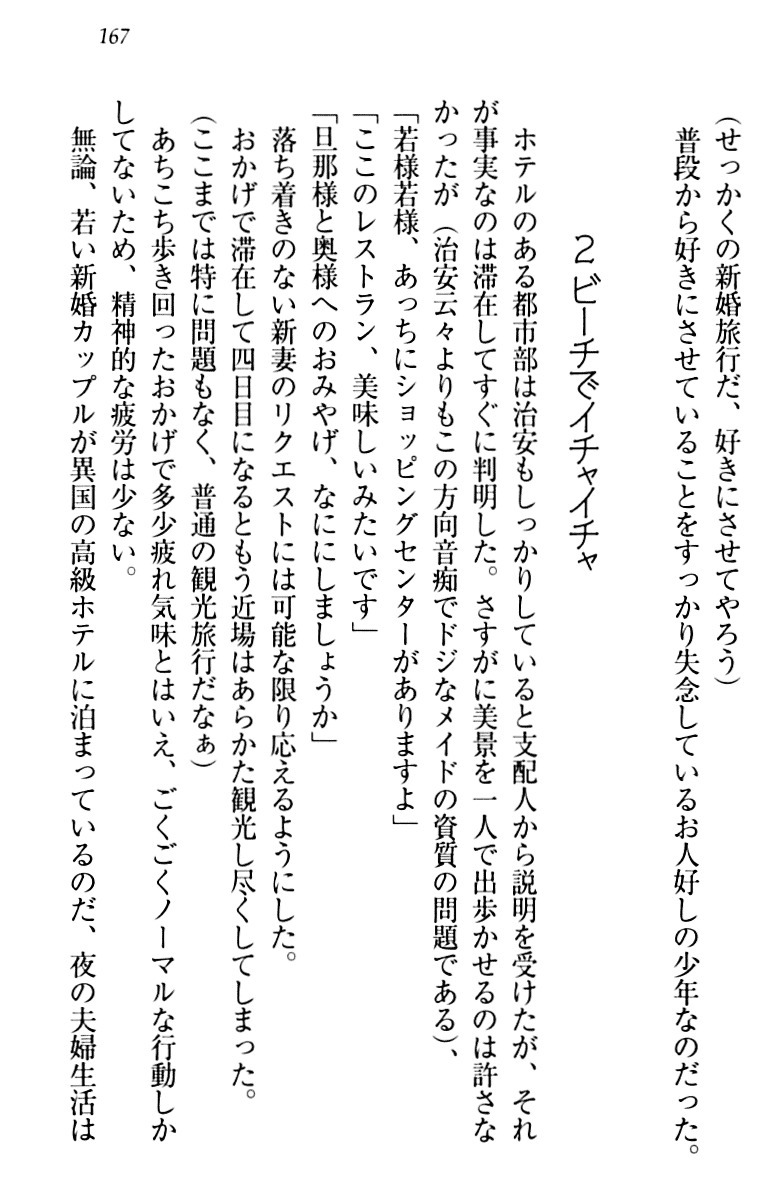 167
（せっかくの新婚旅行だ、好きにさせてやろう）
普段から好きにさせていることをすっかり失念しているお人好しの少年なのだった。
2 ビーチでイチャイチャ
ホテルのある都市部は治安もしっかりしていると支配人から説明を受けたが、それ
が事実なのは滞在してすぐに判明した。さすがに美景を一人で出歩かせるのは許さな
かったが（治安云々よりもこの方向音痴でドジなメイドの資質の問題である）、
「若様若様、あっちにショッピングセンターがありますよ」
「ここのレストラン、美味しいみたいです」
「旦那様と奥様へのおみやげ、なににしましょうか」
落ち着きのない新妻のリクエストには可能な限り応えるようにした。
おかげで滞在して四日目になるともう近場はあらかた観光し尽くしてしまった。
（ここまでは特に問題もなく、普通の観光旅行だなぁ）
あちこち歩き回ったおかげで多少疲れ気味とはいえ、ごくごくノーマルな行動しか
してないため、精神的な疲労は少ない。
無論、若い新婚カップルが異国の高級ホテルに泊まっているのだ、夜の夫婦生活は